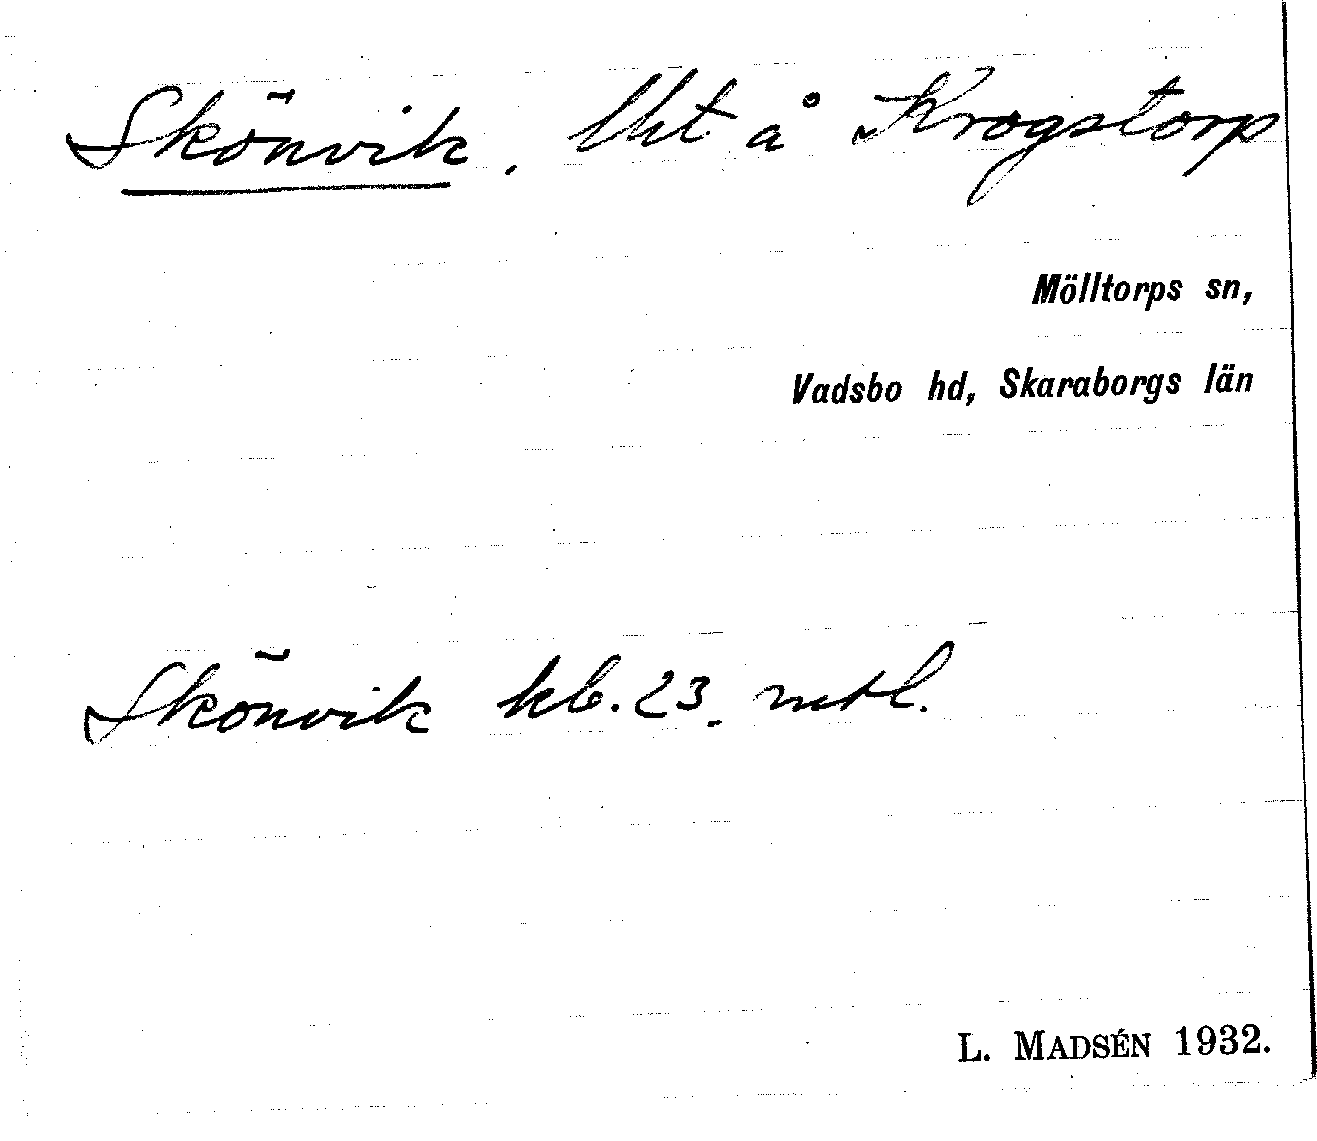 Skönvik, lht å Krogstorp
Mölltorps sn,
Vadsbo hd, Skaraborgs län
Skönvik kb. 23. mtl.
L. MADSÉN 1932.